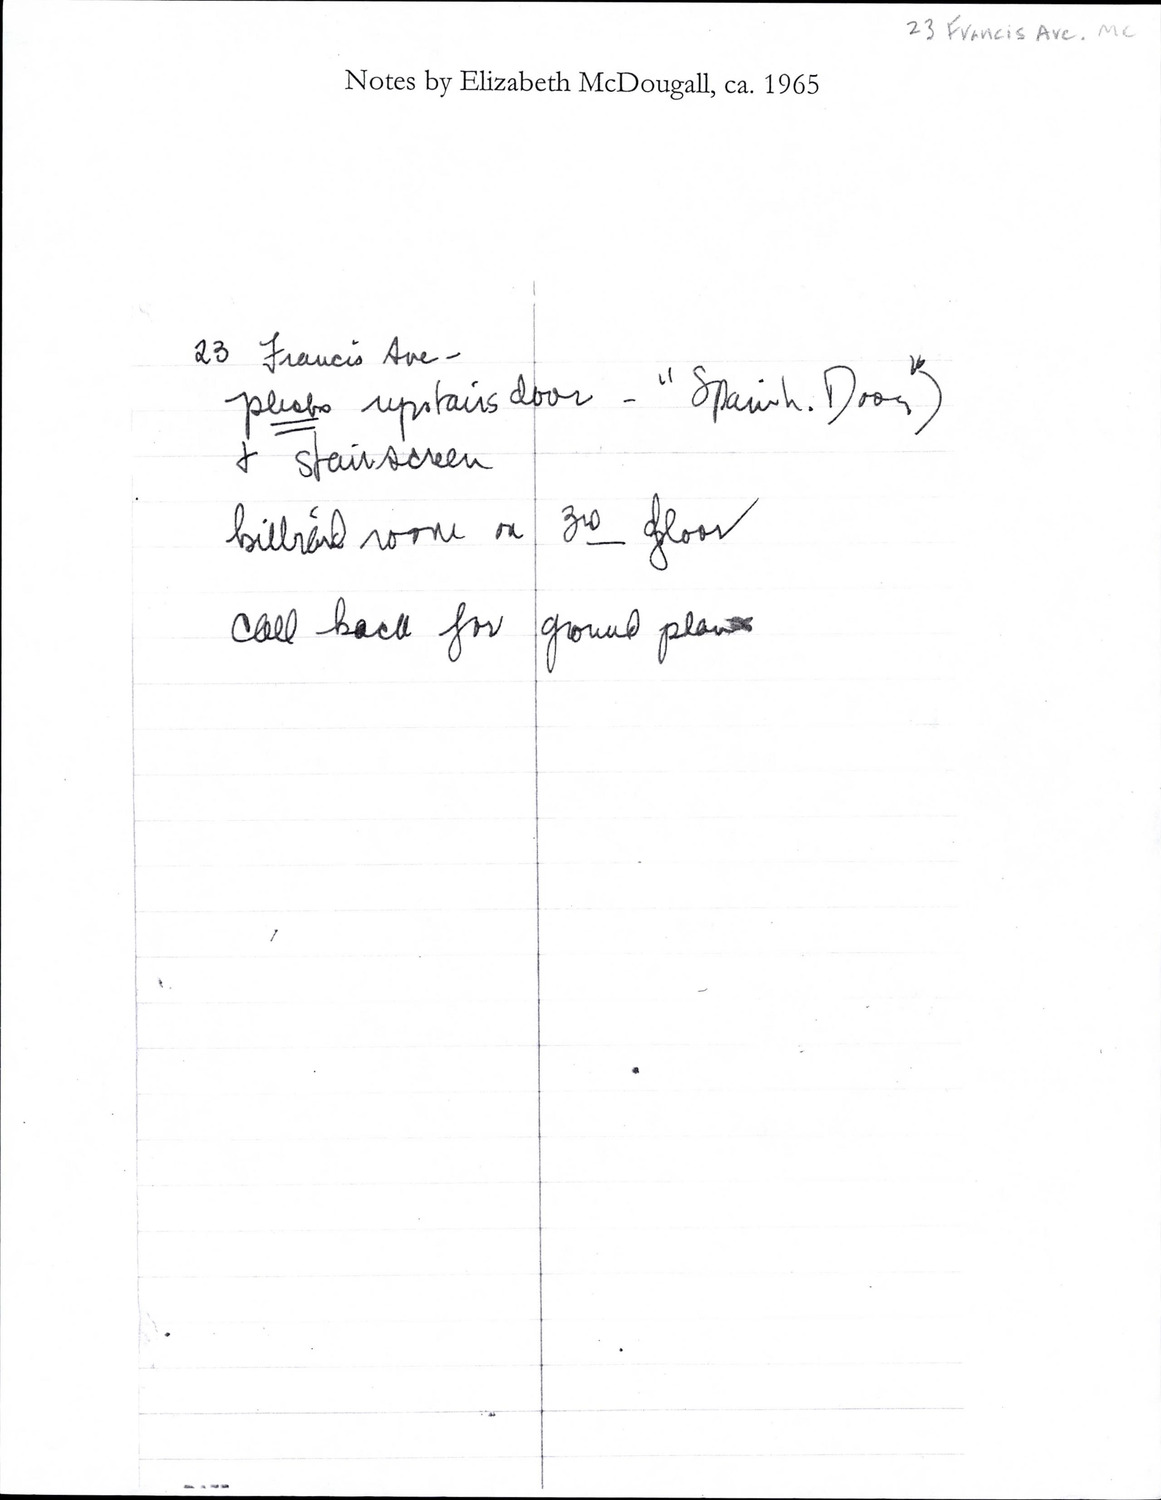 23 Francis Ave. MC
Notes by Elizabeth McDougall, ca. 1965
23 Francis Ave -
photo upstairs door - "Spanish. Door")
& stair screen
billiard room on 3rd floor
call back for ground plan